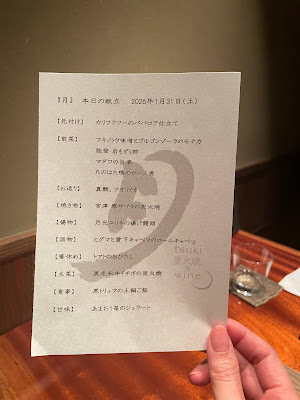 『月』 本日の献立 2026年1月31日(土)
【先付け】 カリフラワーのババロア仕立て
【前菜】 フキノトウ味噌とゴルゴンゾーラのモナカ
能登 岩もずく酢
マダコの旨煮
【お造り】 真鯛、アオリイカ
【焼き物】 宮津 寒サワラの炭火焼
【揚物】 月光ユリネの揚げ饅頭
【温物】 ヒグマと雪下キャベツのロールキャベツ
【箸休め】 トマトのおひたし
【主菜】 黒毛和牛イチボの炭火焼
【食事】 黒トリュフの土鍋ご飯
【甘味】 あまおう苺のジェラート
月
tsuki
炭火焼
&
wine